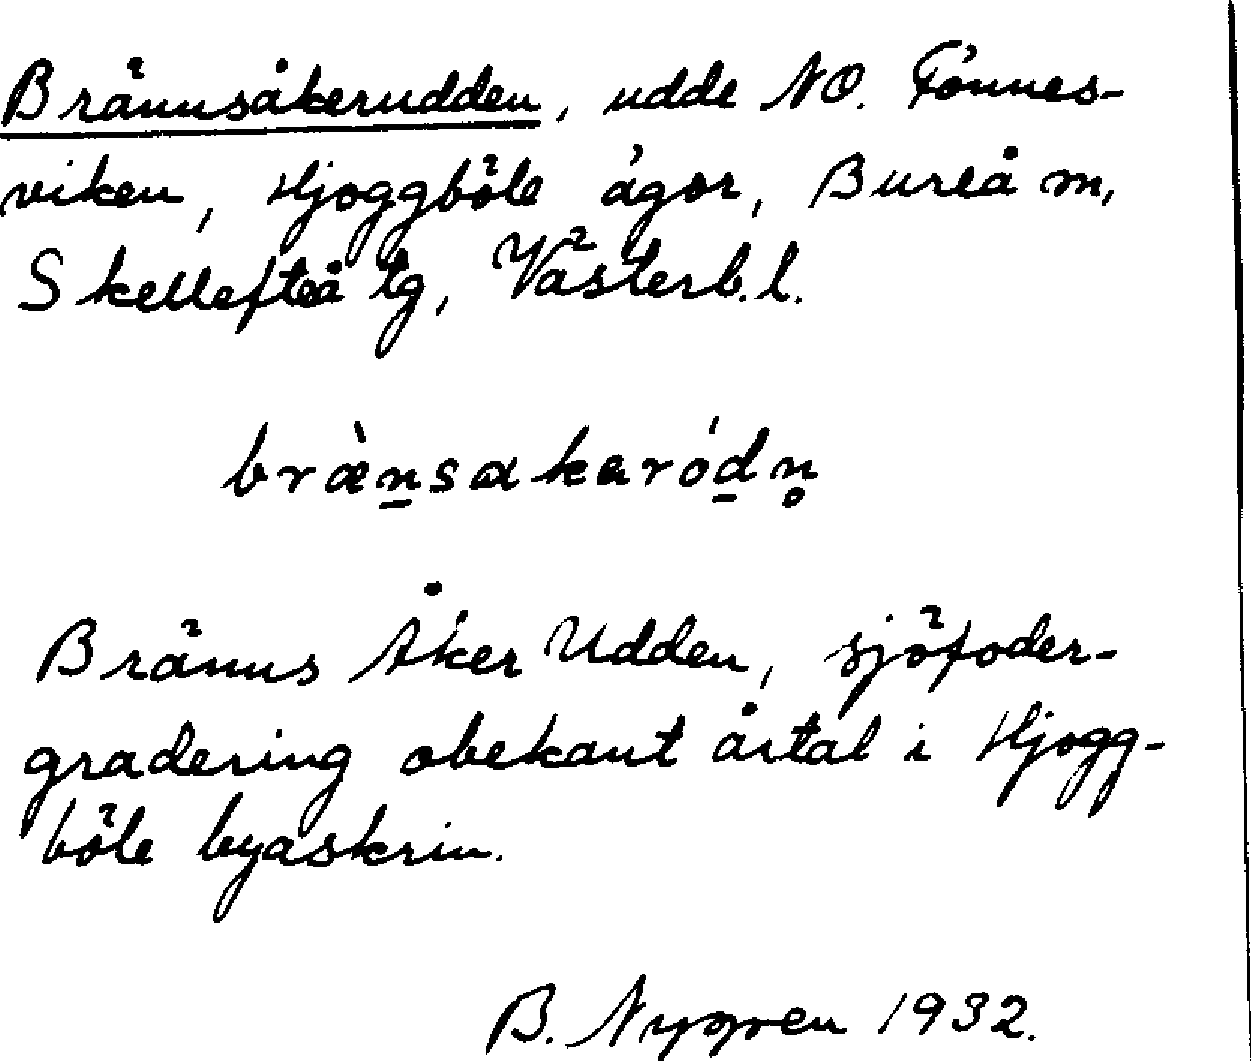 Brännsåkerudden, udde NO. Fönnes-
viken, Hjoggböle ägor, Bureå m,
Skellefteå tg, Västerb.l.
bràn̲sakaródn̥
Bränns Åker Udden, sjöfoder-
gradering obekant årtal i Hjogg-
böle byaskrin.
B. Nygren 1932.